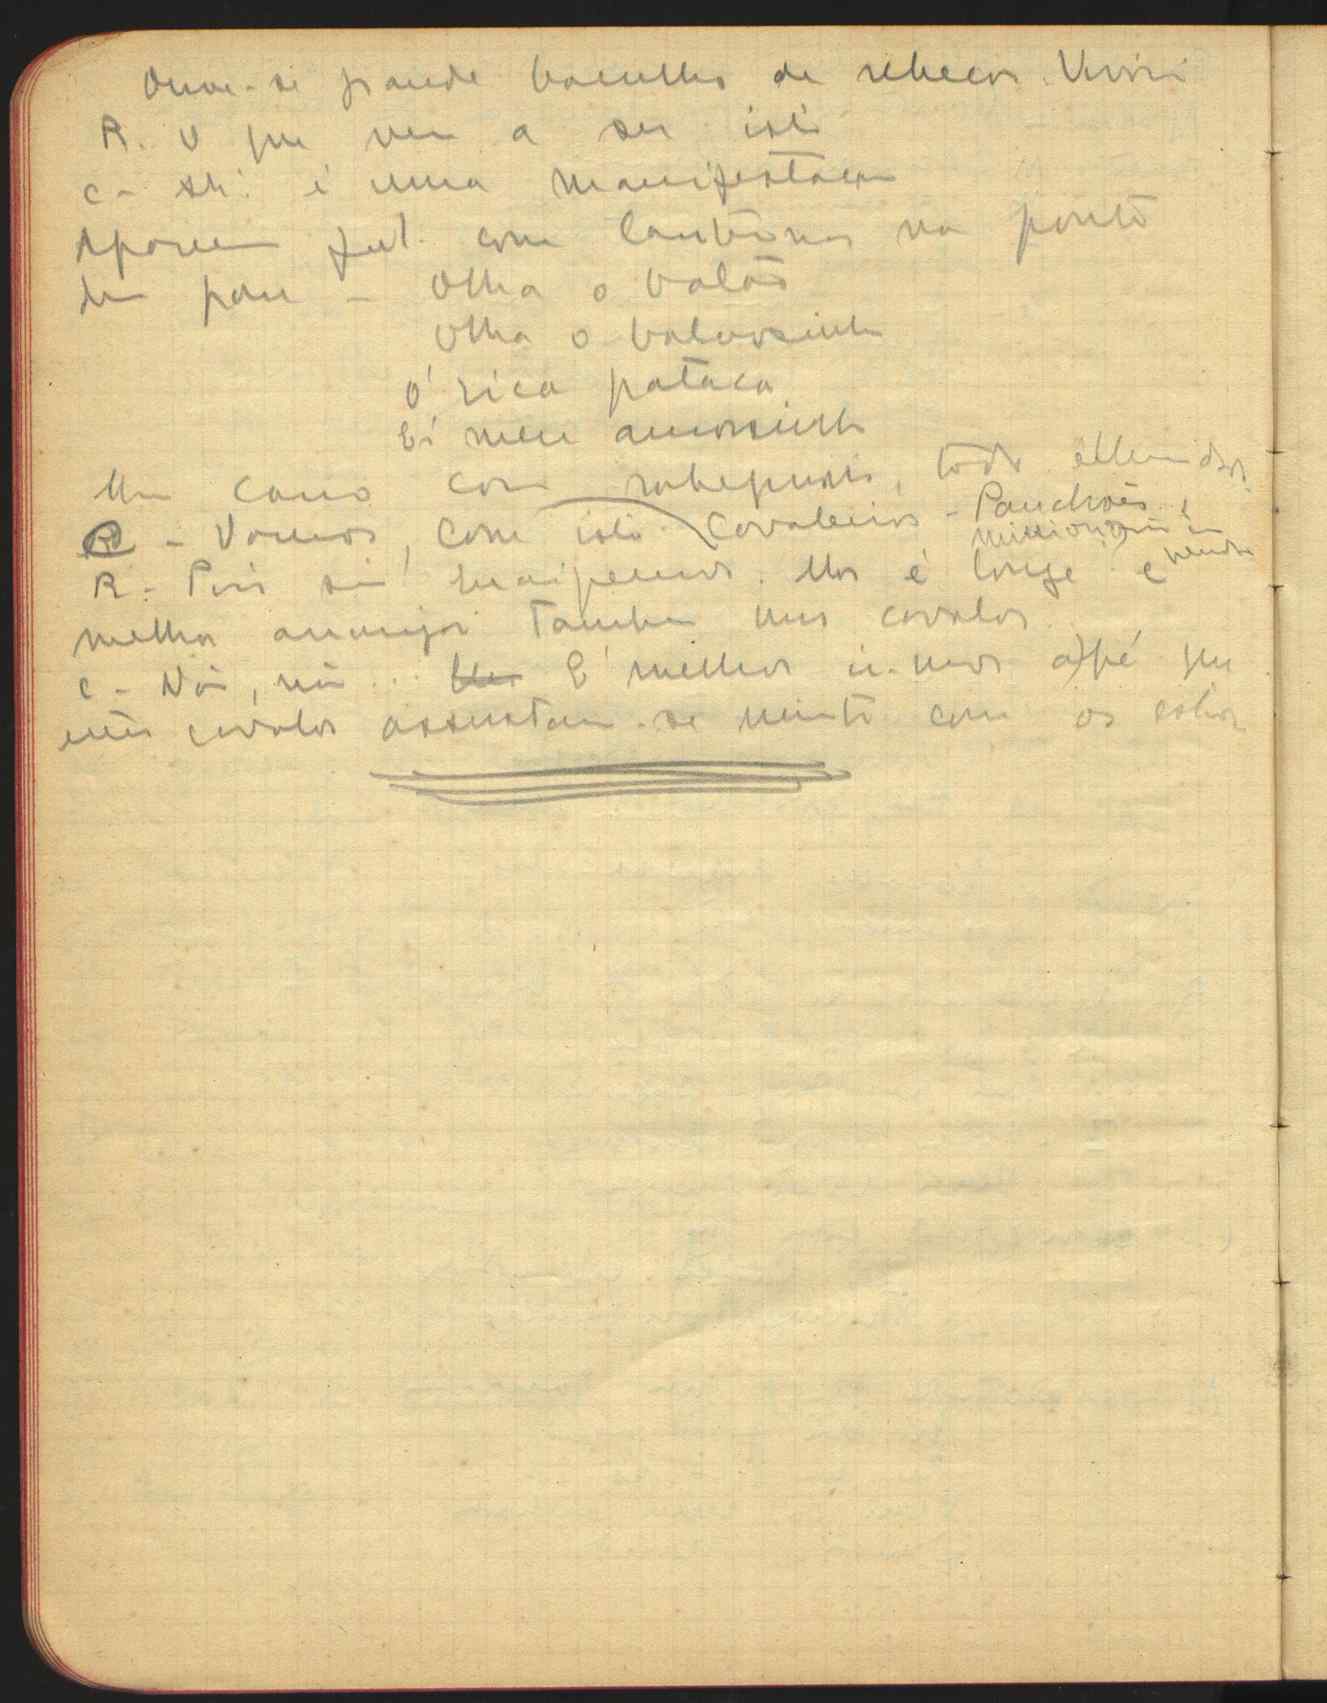 Ouve-se grande barulho de rebecas. Vivas
R. O que vem a ser isto
C- Ah! é uma manifestação
Aparecem com lanternas na ponta
de paus - Olha o balão
Olha o balãosinho
O' rica pataca
E' meu amorsinho
Um carro com todo
R - Vamos, com isto cavaleiros - Panchões,
R. Pois sim . Mas é longe é
melhor arranjar tambem uns cavalos.
C- Não, não... E' melhor ir-mos a pé que
cavalos assustam-se muito com os